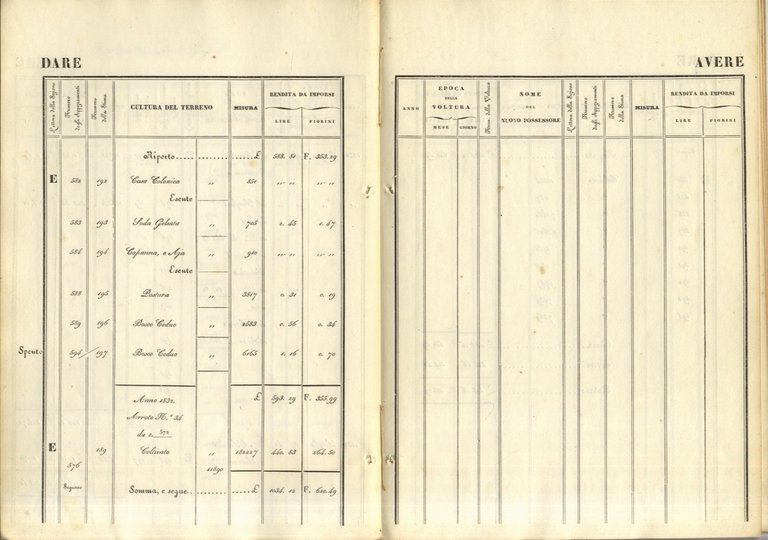 DARE
Lettera della Sezione | Numero degli Appezzamenti | Numero della Stima | CULTURA DEL TERRENO | MISURA | RENDITA DA IMPORSI
LIRE | FIORINI
Riporto..... .......... .....£ 588. 81 F. 353. 29
E 582 192 Casa Colonica ,, 851 ,,. ,, ,,. ,,
Esente
583 193 Soda Gelsata ,, 705 2. 45 1. 47
584 194 Capanna, e Aja ,, 910 ,,. ,, ,,. ,,
Esente
588 195 Pastura ,, 3817 0. 31 0. 19
589 196 Bosco Ceduo ,, 2583 0. 56 0. 34
Spento 594 197 Bosco Ceduo ,, 6165 1. 16 0. 70
£ 593. 29 F. 355. 99
Anno 1832.
Arroto N.° 34
da c. 572
E 576 189 Coltivato ,, 182227 440. 83 264. 50
11890
Segneno
Somma, e segue.. .......... .....£ 1034. 12 F. 620. 49
AVERE
ANNO | EPOCA DELLA VOLTURA | Numero della Voltura | NOME DEL NUOVO POSSESSORE | Lettera della Sezione | Numero degli Appezzamenti | Numero della Stima | MISURA | RENDITA DA IMPORSI
MESE | GIORNO | LIRE | FIORINI